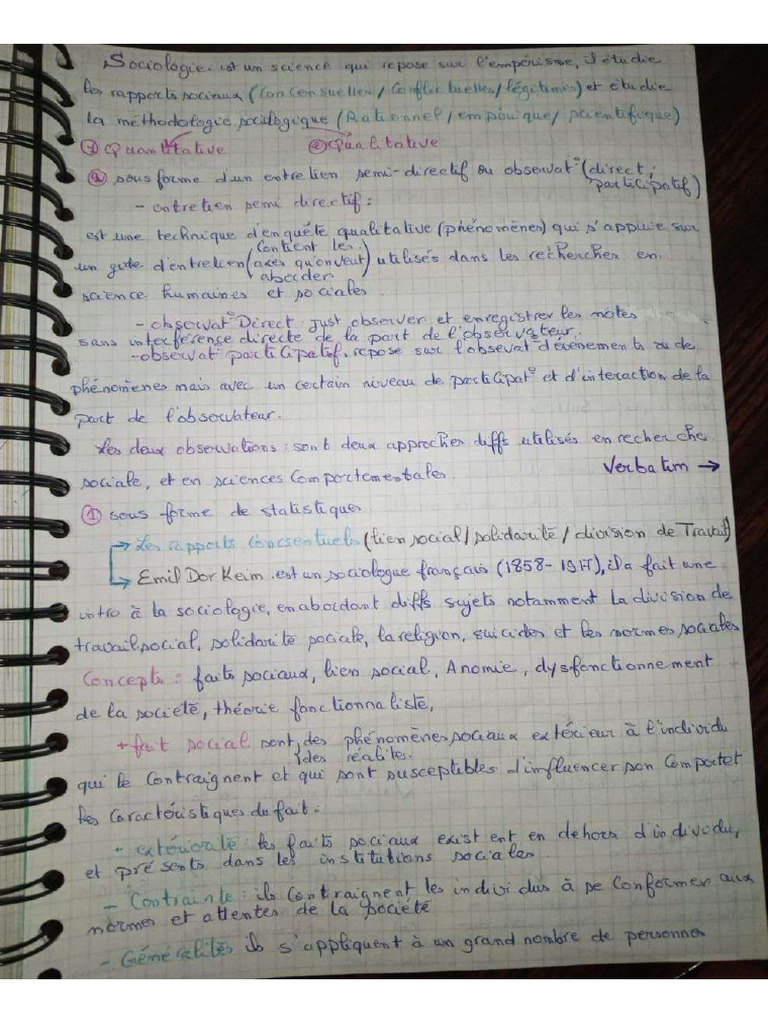 Sociologie. est un science qui repose sur l'empérisme, il étudie
les rapports sociaux (Concensuelles / Conflictuelles / légitimes) et étudie
la méthodologie sociologique (Rationnel / empirique / scientifique)
① Quantitative ② Qualitative
② sous forme d'un entretien semi-directif ou observat° (direct;
participatif)
- entretien semi directif :
est une technique d'enquête qualitative (phénomènes) qui s'appuie sur
un guide d'entretien (Contient les axes qu'on veut aborder) utilisés dans les rechercher en
science humaines et sociales
- observat° Direct just observer et enregistrer les notes
sans interférence directe de la part de l'observateur.
- observat° participatif. repose sur l'obsevat° d'événements ou de
phénomènes mais avec un certain niveau de participat° et d'interaction de la
part de l'observateur.
Les deux observations : sont deux approcher diffs utilisés en recherche
sociale, et en sciences Comportementales.
Verbatim →
① sous forme de statistiques
→ Les rapports Concsentuels (lien social / solidarité / division de Travail)
→ Emil DorKeim. est un sociologue français (1858-1917), il a fait une
intro à la sociologie, en abordant diffs sujets notamment la division de
travail social, solidarité sociale, la religion, suicides et les normes sociales
Concepts : faits sociaux, lien social, Anomie, dysfonctionnement
de la société, théorie fonctionnaliste,
+ fait social sont, des phénomènes sociaux extérieur à l'individu
des réalités
qui le Contraignent et qui sont susceptibles d'influencer son Comportet
Les Caractéristiques du fait :
+ extériorité : les faits sociaux existent en dehors d'individu,
et présents dans les institutions sociales.
- Contrainte : ils Contraignent les individus à se Conformer aux
normes et attentes de la société
- Généralités ils s'appliquent à un grand nombre de personnes